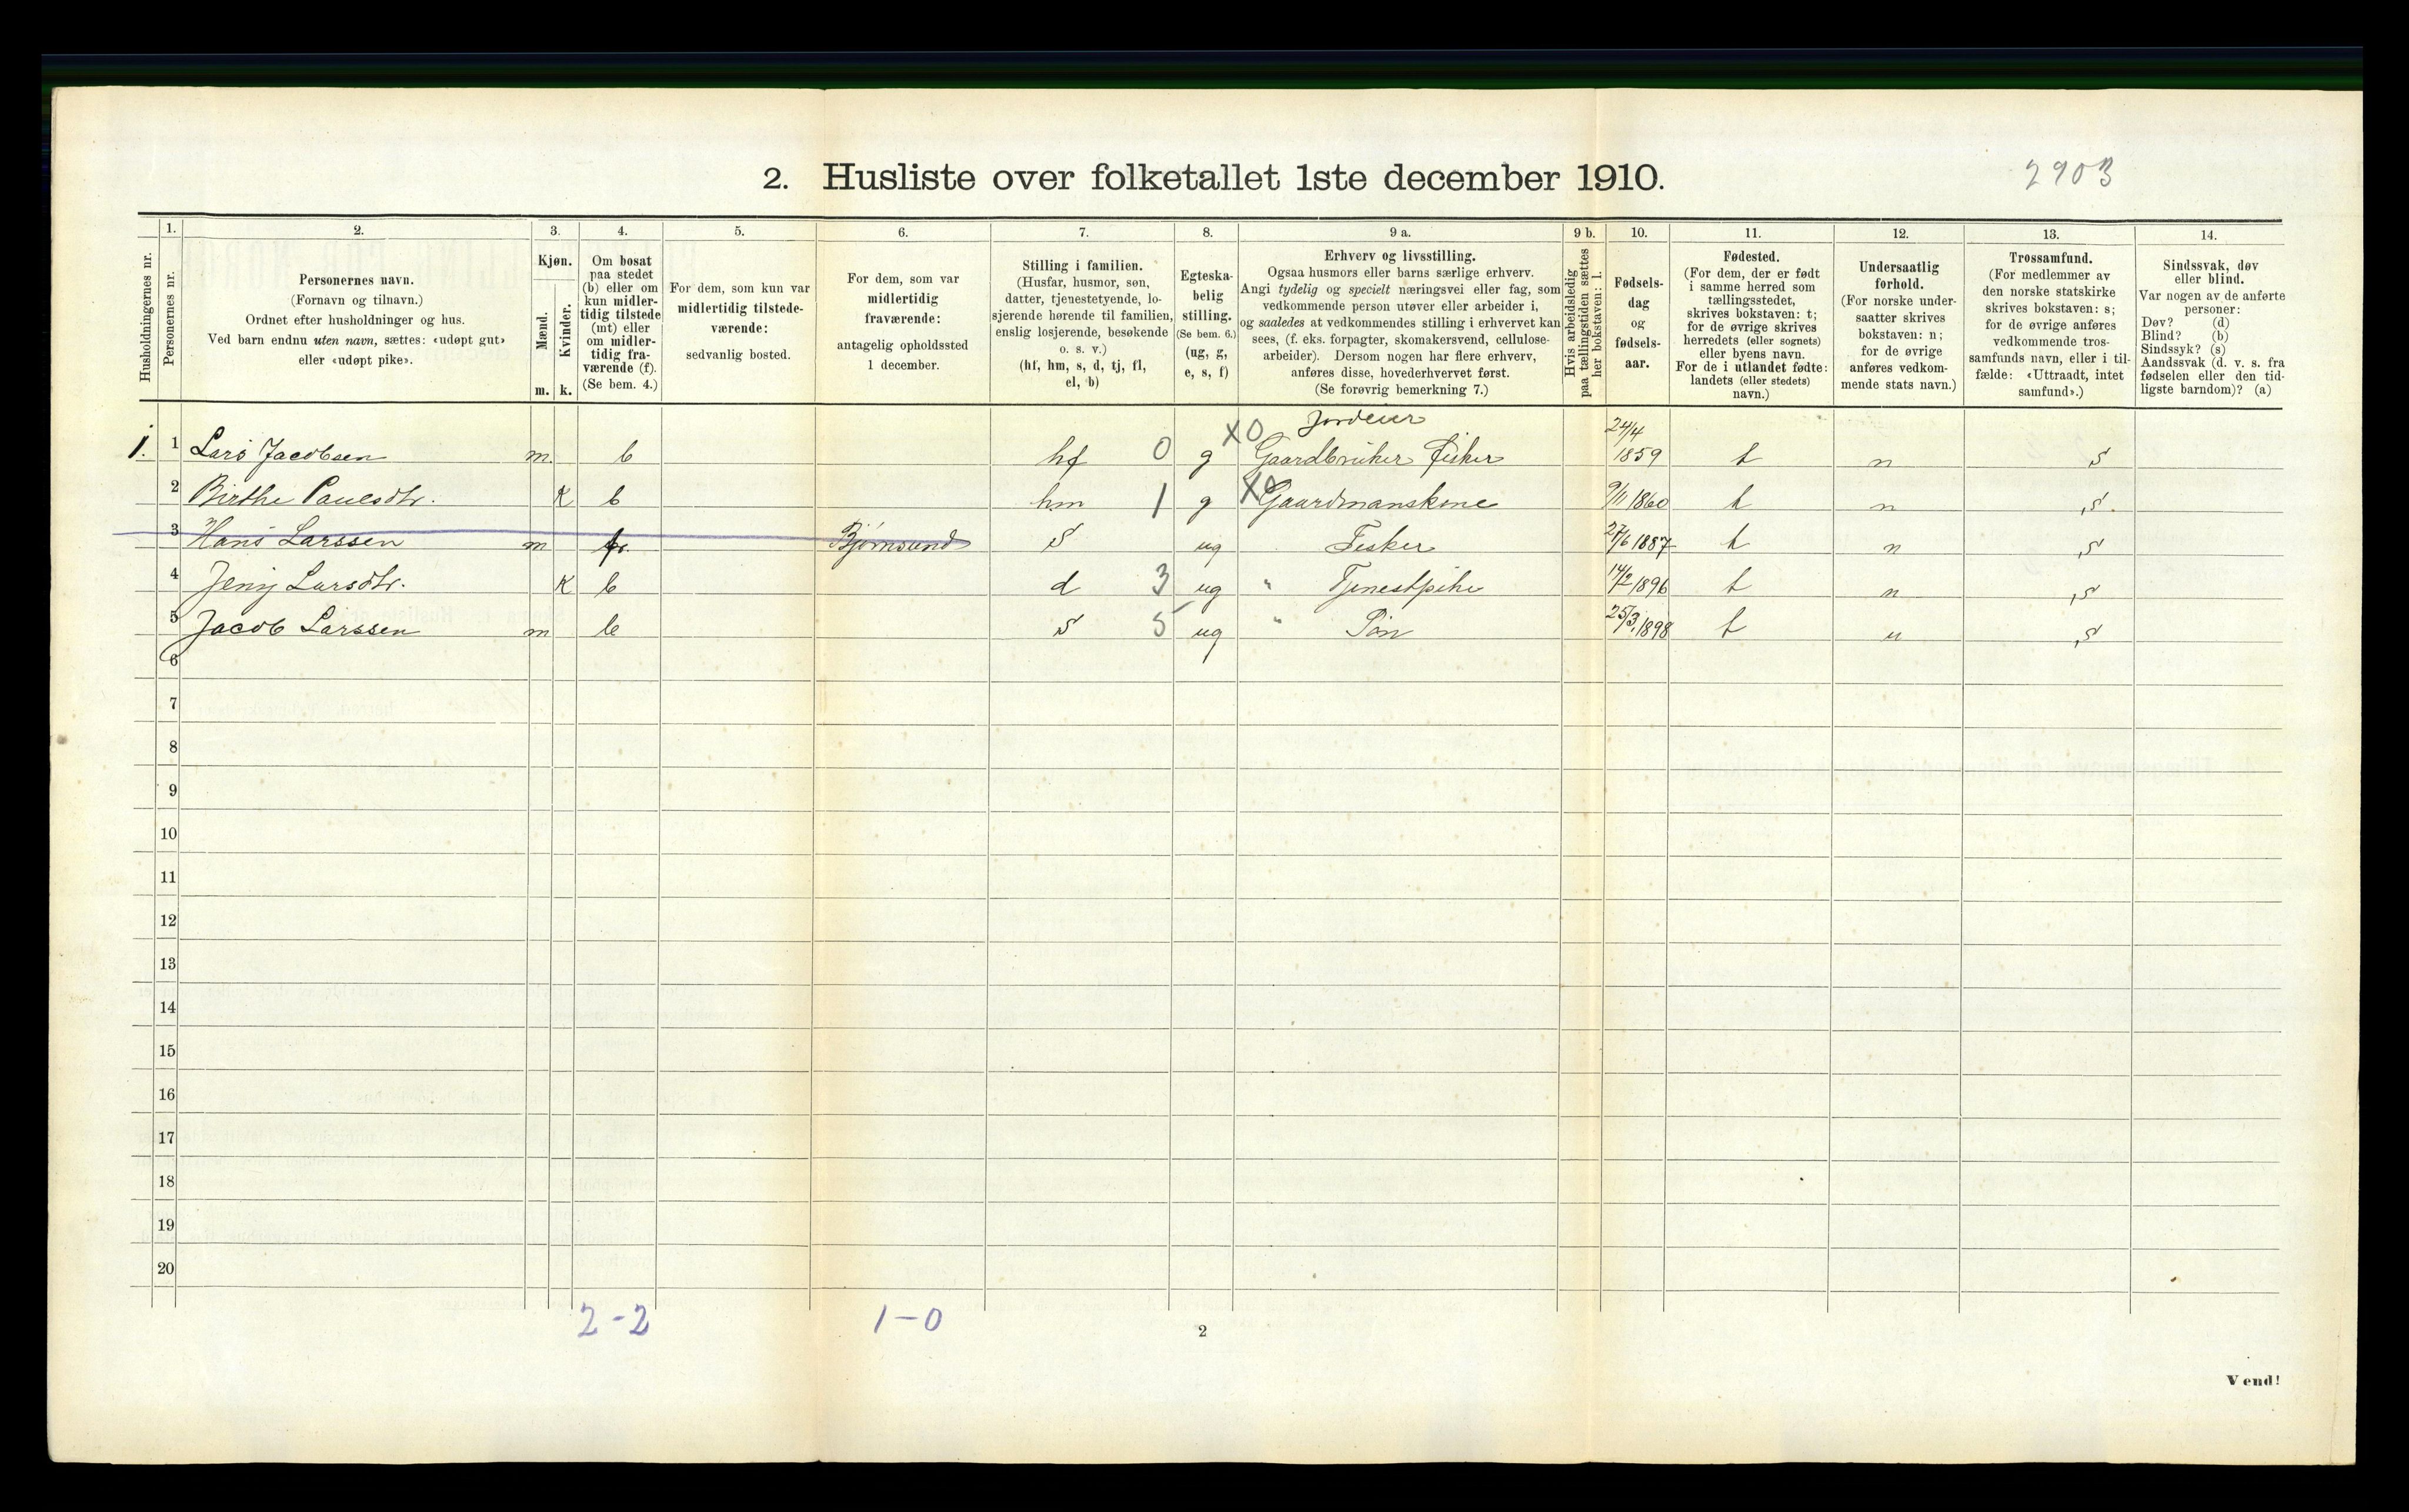 2. Husliste over folketallet 1ste december 1910.
2903
Husholdningernes nr.
1.
Personernes nr.
2.
Personernes navn.
(Fornavn og tilnavn.)
Ordnet efter husholdninger og hus.
Ved barn endnu uten navn, sættes: «udøpt gut»
eller «udøpt pike».
3.
Kjøn.
Mænd.
m.
Kvinder.
k.
4.
Om bosat
paa stedet
(b) eller om
kun midler-
tidig tilstede
(mt) eller
om midler-
tidig fra-
værende (f).
(Se bem. 4.)
5.
For dem, som kun var
midlertidig tilstede-
værende:
sedvanlig bosted.
6.
For dem, som var
midlertidig
fraværende:
antagelig opholdssted
1 december.
7.
Stilling i familien.
(Husfar, husmor, søn,
datter, tjenestetyende, lo-
sjerende hørende til familien,
enslig losjerende, besøkende
o. s. v.)
(hf, hm, s, d, tj, fl,
el, b)
8.
Egteska-
belig
stilling.
(Se bem. 6.)
(ug, g,
e, s, f)
9 a.
Erhverv og livsstilling.
Ogsaa husmors eller barns særlige erhverv.
Angi tydelig og specielt næringsvei eller fag, som
vedkommende person utøver eller arbeider i,
og saaledes at vedkommendes stilling i erhvervet kan
sees, (f. eks. forpagter, skomakersvend, cellulose-
arbeider). Dersom nogen har flere erhverv,
anføres disse, hovederhvervet først.
(Se forøvrig bemerkning 7.)
9 b.
Hvis arbeidsledig
paa tællingstiden sættes
her bokstaven: l.
10.
Fødsels-
dag
og
fødsels-
aar.
11.
Fødested.
(For dem, der er født
i samme herred som
tællingsstedet,
skrives bokstaven: t;
for de øvrige skrives
herredets (eller sognets)
eller byens navn.
For de i utlandet fødte:
landets (eller stedets)
navn.)
12.
Undersaatlig
forhold.
(For norske under-
saatter skrives
bokstaven: n;
for de øvrige
anføres vedkom-
mende stats navn.)
13.
Trossamfund.
(For medlemmer av
den norske statskirke
skrives bokstaven: s;
for de øvrige anføres
vedkommende tros-
samfunds navn, eller i til-
fælde: «Uttraadt, intet
samfund».)
14.
Sindssvak, døv
eller blind.
Var nogen av de anførte
personer:
Døv? (d)
Blind? (b)
Sindssyk? (s)
Aandssvak (d. v. s. fra
fødselen eller den tid-
ligste barndom)? (a)
Jordeier
1. 1 Lars Jacobsen m. b hf 0 g XO Gaardbruker Fisker 24/4 1859 t n s
2 Birthe Paulsdtr. K b hm 1 g XO Gaardmanskone 9/11 1860 t n s.
3 Hans Larssen m f Bjørnsund s ug Fisker 27/6 1887 t n s
4 Jenny Larsdtr. K b d 3 ug " Tjenestpike 14/2 1896 t n s
5 Jacob Larssen m b s 5 ug " Søn 25/3 1898 t n s
6
7
8
9
10
11
12
13
14
15
16
17
18
19
20
2-2 1-0
2
Vend!